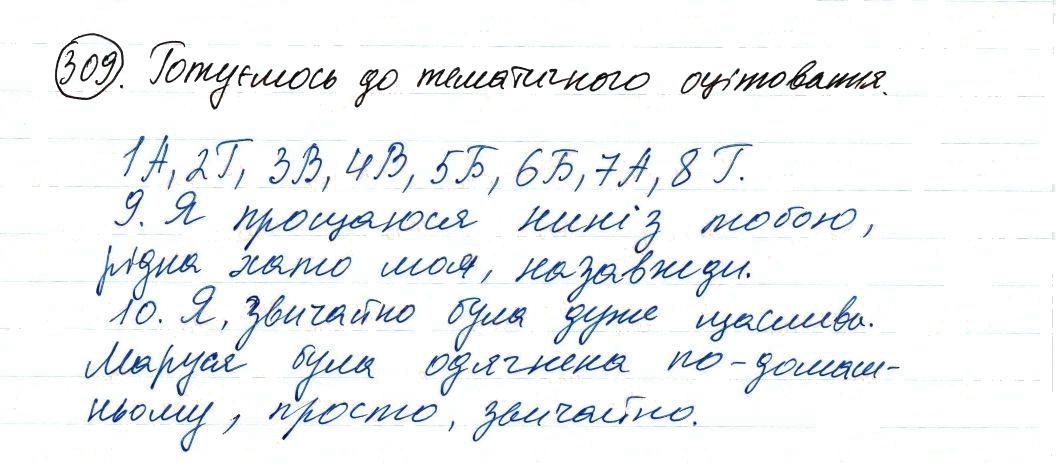 309. Готуємось до тематичного оцінювання.
1А, 2Г, 3В, 4В, 5Б, 6Б, 7А, 8Г.
9. Я прощаюся нині з тобою,
рідна хато моя, назавжди.
10. Я, звичайно була дуже щаслива.
Маруся була одягнена по-домаш-
ньому, просто, звичайно.